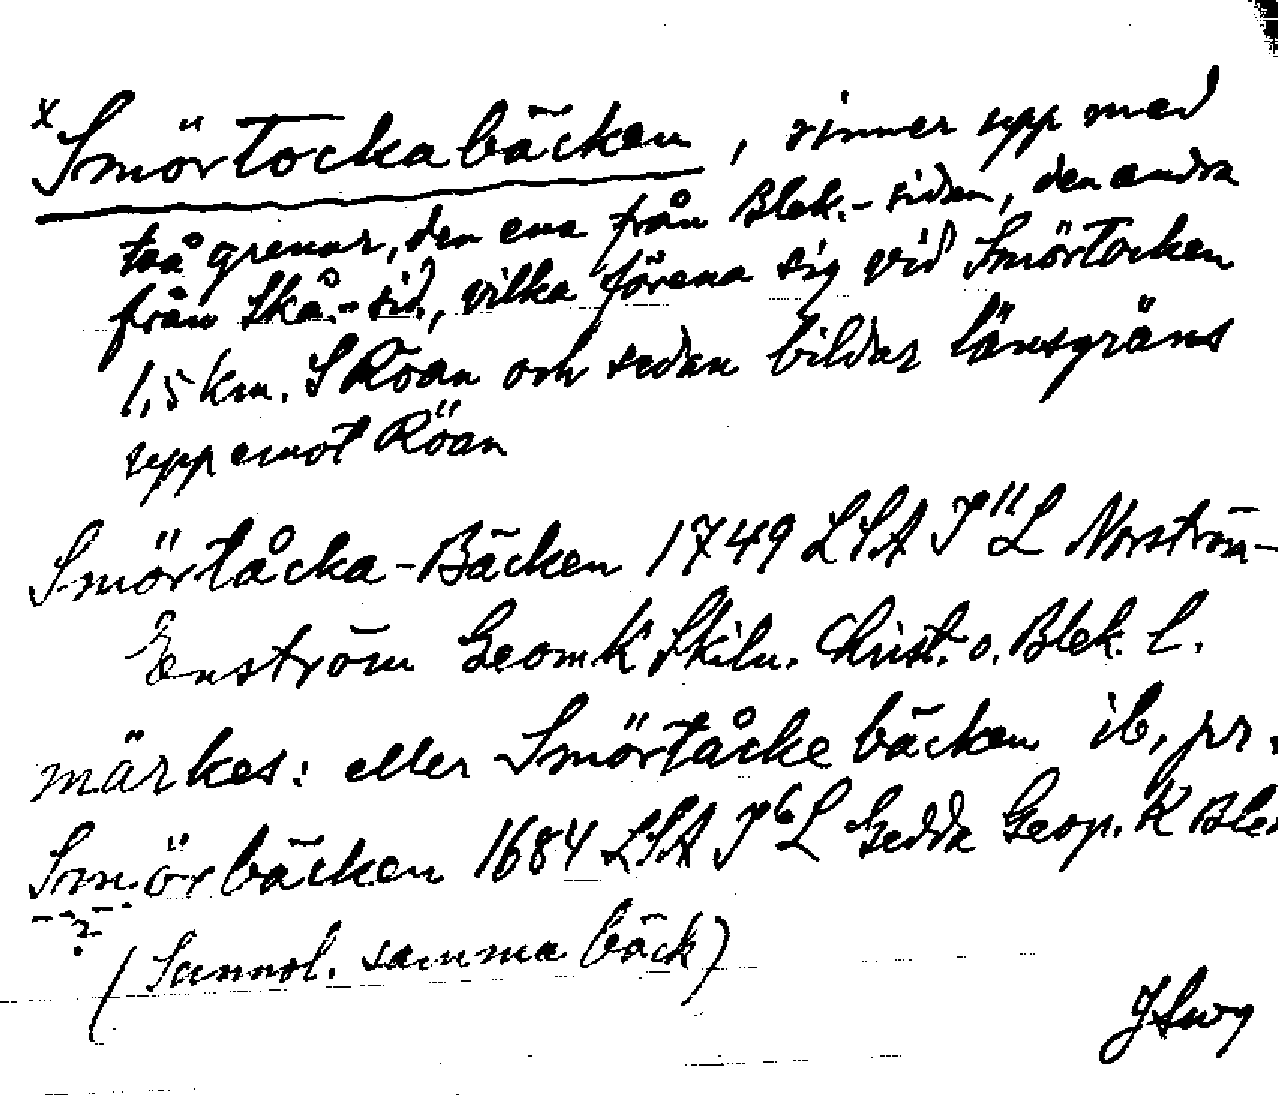 x Smörtockabäcken, rinner upp med
två grenar, den ena från Blek.-sidan, den andra
från Skå.-sid., vilka förena sig vid Smörtocken
1,5 km. S Röan och sedan bildar länsgräns
upp emot Röan
Smörtåcka-Bäcken 1749 LSA I"L Norström-
Enström Geom K Skiln. Christ. o. Blek. L.
märkes: eller Smörtåckebäcken ib. pr.
Smörbäcken 1684 LSA I6L Gedda Geogr. K Blek
?
(Sannol. samma bäck)